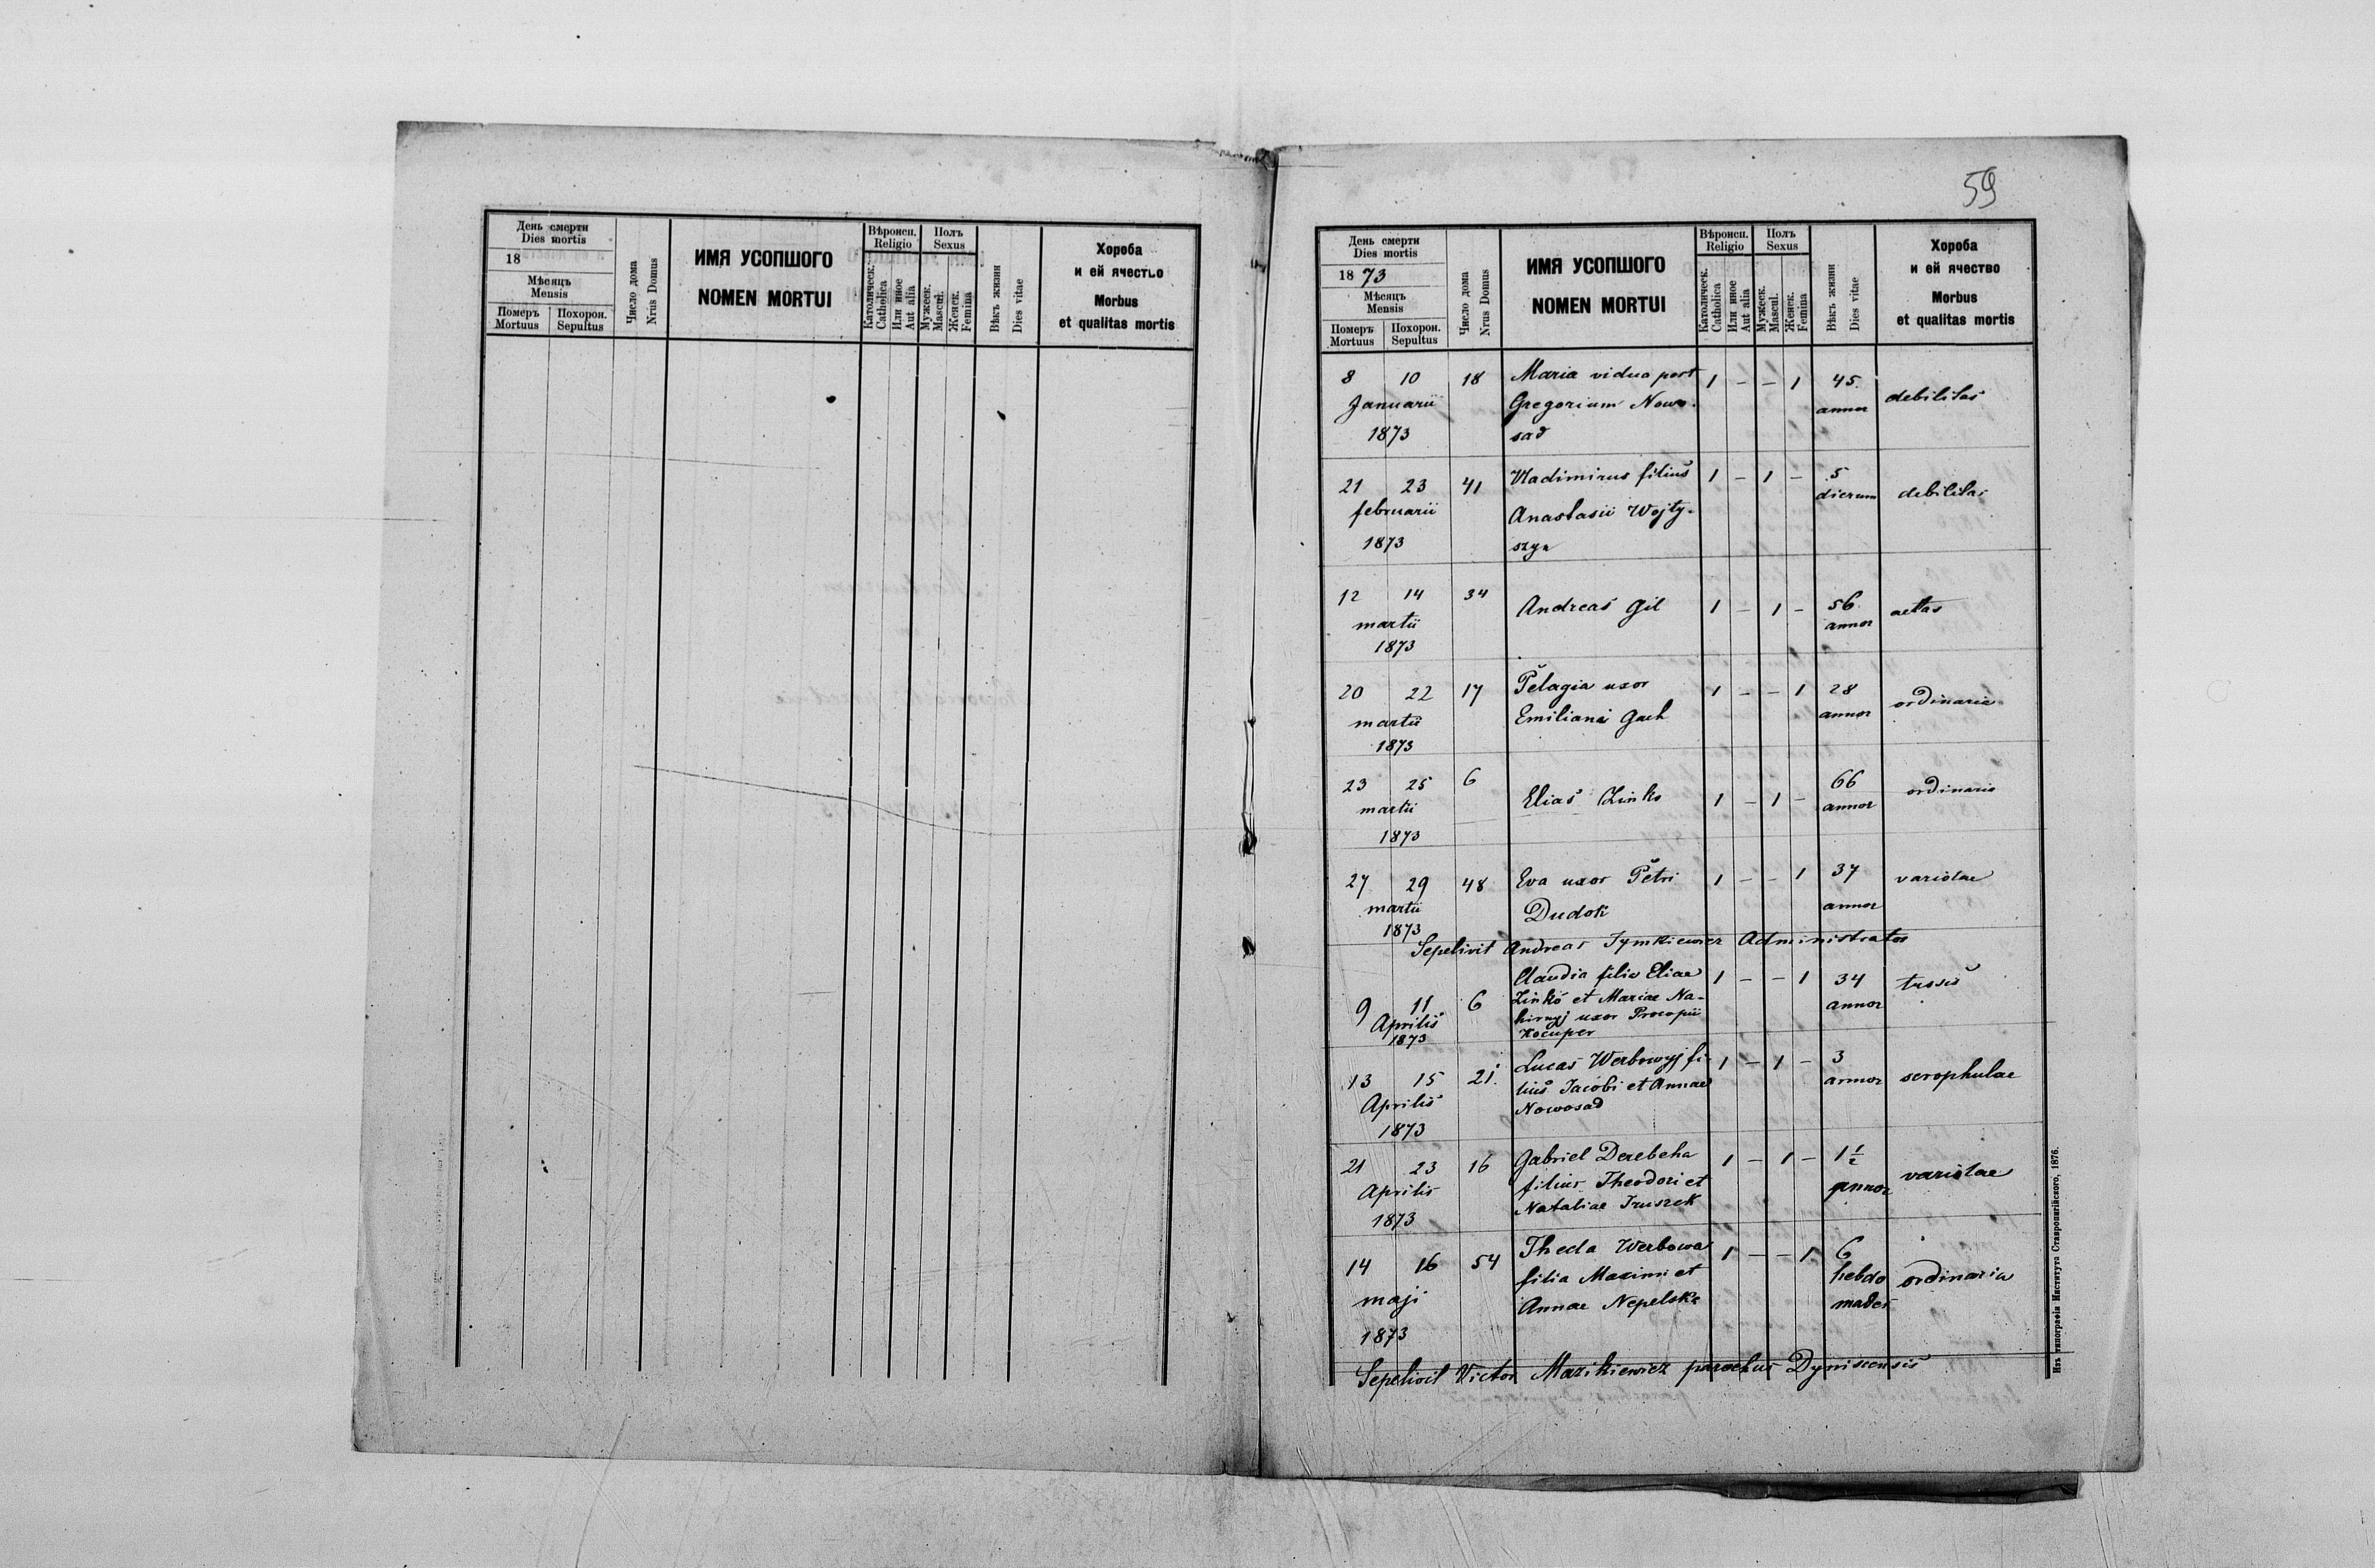 День смерти
Dies mortis
18
Мѣсяць
Mensis
Померъ
Mortuus
Похорон.
Sepultus
Число дома
Nrus Domus
ИМЯ УСОПШОГО
NOMEN MORTUI
Вѣроисп.
Religio
Католическ.
Catholica
Или иное
Aut alia
Полъ
Sexus
Мужеск.
Mascul.
Женск.
Femina
Вѣкъ жизни
Dies vitae
Хороба
и ей ячество
Morbus
et qualitas mortis
59
День смерти
Dies mortis
1873
Мѣсяць
Mensis
Померъ
Mortuus
Похорон.
Sepultus
Число дома
Nrus Domus
ИМЯ УСОПШОГО
NOMEN MORTUI
Вѣроисп.
Religio
Католическ.
Catholica
Или иное
Aut alia
Полъ
Sexus
Мужеск.
Mascul.
Женск.
Femina
Вѣкъ жизни
Dies vitae
Хороба
и ей ячество
Morbus
et qualitas mortis
8 10 18 Maria vidua post 1 - - 1 45
Januarii Gregorium Nowo- annor debilitas
1873 sad
21 23 41 Vladimirus filius 1 - 1 - 5
februarii Anastasii Wojty- dierum debilitas
1873 szyn
12 14 34 Andreas Gil 1 - 1 - 56 aetas
martii annor
1873
20 22 17 Pelagia uxor 1 - - 1 28 ordinaria
martii Emiliani Gach annor
1873
23 25 6 Elias Zinko 1 - 1 - 66 ordinaria
martii annor
1873
27 29 48 Eva uxor Petri 1 - - 1 37 variolae
martii Dudok annor
1873
Sepelivit Andreas Tymkiewicz Administrator
9 11 6 Claudia filia Eliae 1 - - 1 34 tussis
Aprilis Zinko et Mariae Na- annor
1873 hirnyj uxor Procopii
Kocuper
13 15 21 Lucas Werbowyj fi- 1 - 1 - 3
Aprilis lius Jacobi et Annae annor scrophulae
1873 Nowosad
21 23 16 Gabriel Derebeha 1 - 1 - 1½
Aprilis filius Theodori et annor variolae
1873 Nataliae Iruszek
14 16 54 Thecla Werbowa 1 - - 1 6
maji filia Maximi et hebdo ordinaria
1873 Annae Nepelska mades
Sepelivit Victor Mazikiewicz parochus Dyniscensis
Изъ типографіи Института Ставропигійского, 1876.